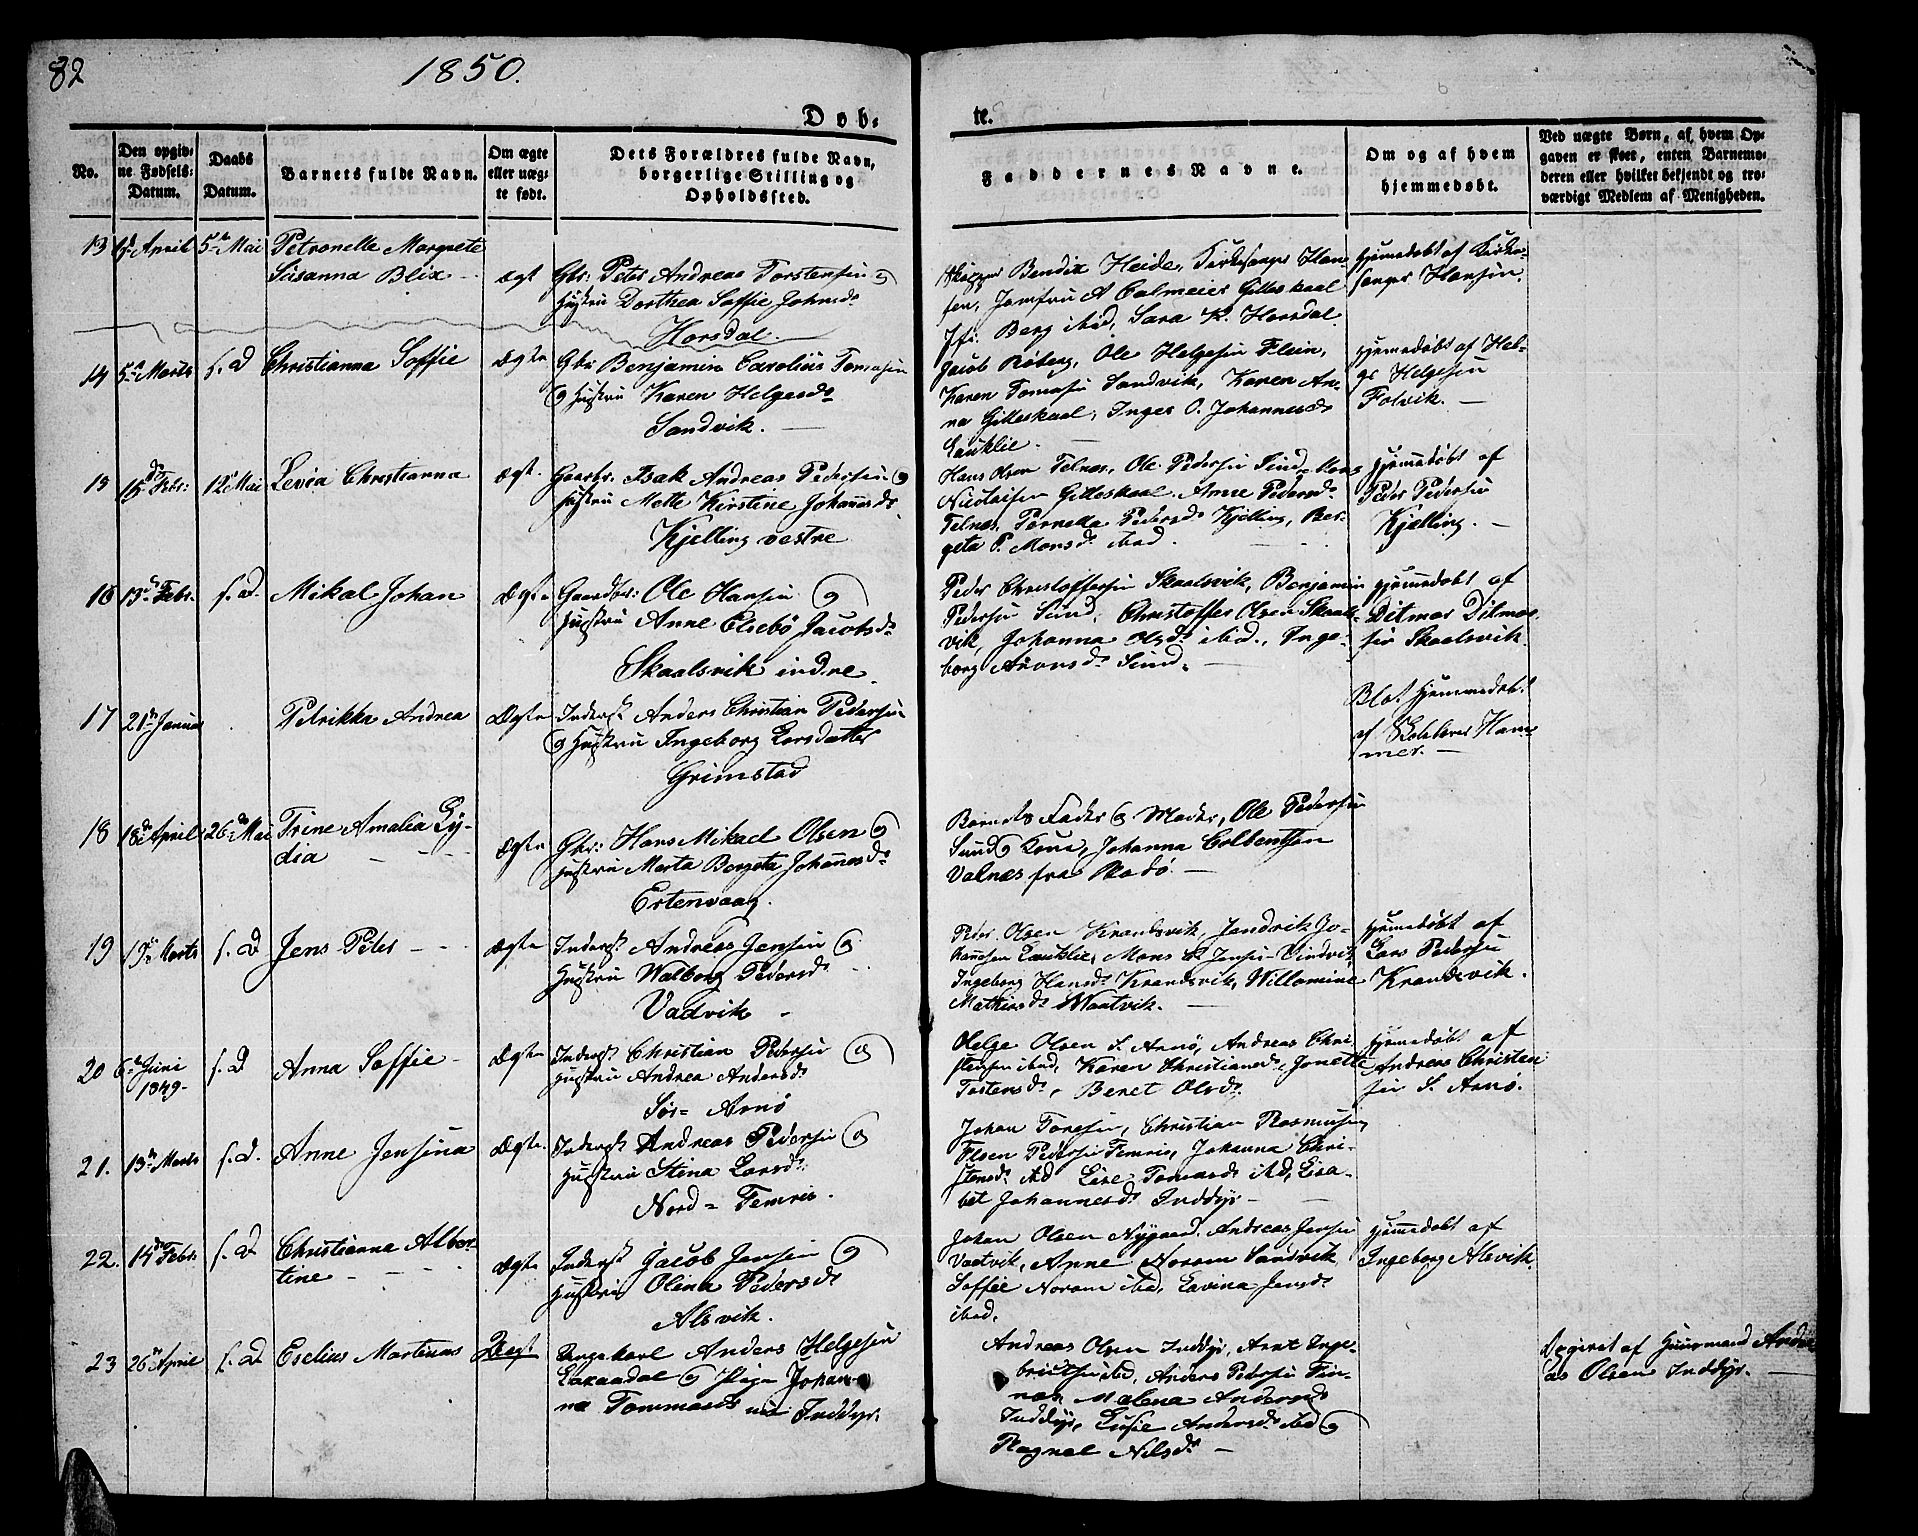 82
1850.
Døb-
te.
No.
Den opgiv-
ne Fødsels-
Datum.
Daabs
Datum.
Barnets fulde Navn.
Om ægte
eller uæg-
te født.
Dets Forældres fulde Navn,
borgerlige Stilling og
Opholdssted.
Faddernes Navne.
Om og af hvem
hjemmedøbt.
Ved uægte Børn, af hvem Op-
gaven er skeet, enten Barnemo-
deren eller hvilket bekjendt og tro-
værdigt Medlem af Menigheden.
13 April 5te Mai Petronelle Margrete
Susanna Blix
Ægt
Gbr: Peter Andreas Torstensen og
Hustru Dorthea Soffie Johnsd.
Horsdal.
Bendix Heide, Kirkesanger Han-
sen, Jomfru A Calmeier Gilleskaal
Jfr: Berg ibid, Sara K. Horsdal.
Hjemmedøbt af Kirke-
sanger Hansen.
14 5te Marts s. D Christianna Soffie
Ægte
Gbr Benjamin Carolius Tomasen
og Hustru Karen Helgesd.
Sandvik.
Jacob Røberg, Ole Helgesen Flein,
Karen Tomasd Sandvik, Karen An-
na Gilleskaal, Inger O. Johannesd
Lauklie.
Hjemmedøbt af Hel-
ge Helgesen
Folvik.
15 15d Febr: 12te Mai Levia Christianna
Ægt.
Gaardbr. Isak Andreas Pedersen og
Hustru Mette Kirstine Johannesd.
Kjelling vestre
Hans Olsen Telnes, Ole Pedersen Sund, Mons
Nicolaisen Gilleskaal. Anne Pedersd.
Telnes, Pernella Pedersd. Kjelling, Ber-
geta P. Monsd. ibid.
Hjemmedøbt af
Peder Pedersen
Kjelling.
16 13de Febr. s. D. Mikal Johan
Ægte
Gaardbr: Ole Hansen og
Hustru Anne Elsebø Jacobsd.
Skaalsvik indre.
Peder Christoffersen Skaalsvik, Benjamin
Pedersen Sund, Christoffer Olsen Skaals-
vik, Johanna Olsd. ibid., Inge-
borg Aronsd. Sund.
Hjemmedøbt af
Ditmar Ditmar-
sen Skaalsvik
17 21de Januar Petrikka Andrea
Ægte
Inderst Anders Christian Pedersen
og Hustru Ingeborg Larsdatter
Grimstad
Blot Hjemmedøbt
af Skolelærer Ham-
mer.
18 18de April 26de Mai Trine Amalia Ly-
dia
Ægte
Gbr: Hans Mikael Olsen og
Hustru Marta Bergeta Johannesd.
Ertenvaag.
Barnets Fader og Moder, Ole Pedersen
Sund og Kone, Johanna Colbentsen
Valnæs fra Bodø.
19 19de Marts s. D Jens Peter
Ægte
Inderst Andreas Jensen og
Hustru Walborg Pedersd.
Vadvik
Peder Olsen Krandsvik, Jendrik Jo-
hannesen Lauklie, Mons L Jensen Vindvik,
Ingeborg Hansd. Krandsvik, Willomine
Mathiasd. Waatvik.
Hjemmedøbt af
Lars Pedersen
Krandsvik.
20 6te Juni
1849
s. D Anna Soffie
Ægte
Inderst Christian Pedersen og
Hustru Andrea Andersd.
Sør- Arnø
Helge Olsen S. Arnø, Andreas Chri-
stensen ibid, Karen Christiansd. Jonette
Tostensd., Beret Olsd.
Hjemmedøbt af
Andreas Christen-
sen S. Arnø.
21. 13de Marts s. d. Anne Jensina
Ægte.
Inderst Andreas Pedersen og
Hustru Stina Larsd.
Nord- Femris.
Johan Toresen, Christian Rasmusen,
Elsen Pedersen Femris, Johanna Chri-
stensd. ibd Lise Tomasd. ibd, Lisa-
bet Johannesd. Inddyr
22. 14de Febr s. D Christianna Alber-
tine
Ægte
Inderst Jacob Jensen og
Hustru Olina Pedersd.
Alsvik.
Johan Olsen Nygaard, Andreas Jensen
Vaatvik, Anne Norum Sandvik
Soffie Norum ibid, Lavina Jensd.
ibid.
Hjemmedøbt af
Ingeborg Alsvik.
23 26de April s. D Eselius Martinus
Uægt
Ungekarl Anders Helgesen
og Pige Johan-
na Tommasd. Inddyr.
Andreas Olsen Inddyr, Arnt Inge-
brictsen ibid, Anders Pedersen Fin-
næs, Malena Andersd.
Inddyr, Lusie Andersd. ibid og
Ragnel Nilsd.
Opgivet af Huusmand Andre-
as Olsen Inddyr.